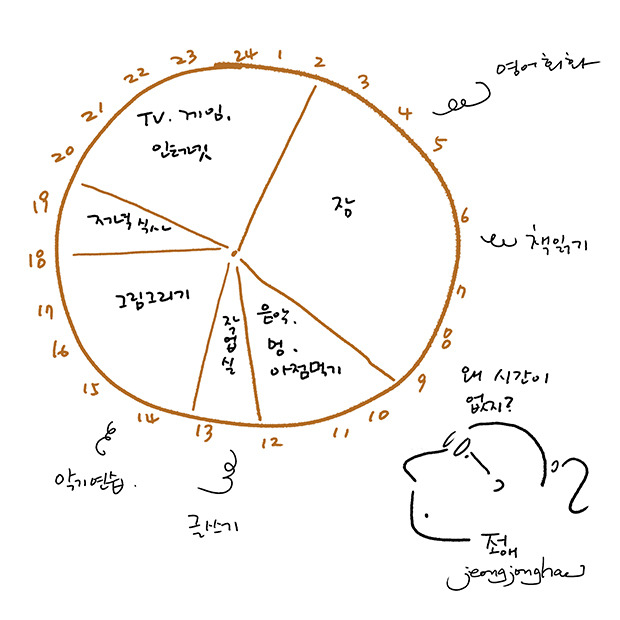 24
1
2
3
4
5
6
7
8
9
10
11
12
13
14
15
16
17
18
19
20
21
22
23
TV. 게임.
인터넷
잠
저녁 식사
그림그리기
작
업
실
음악.
멍.
아점먹기
영어회화
책읽기
악기연습.
글쓰기
왜 시간이
없지?
jeongjonghae